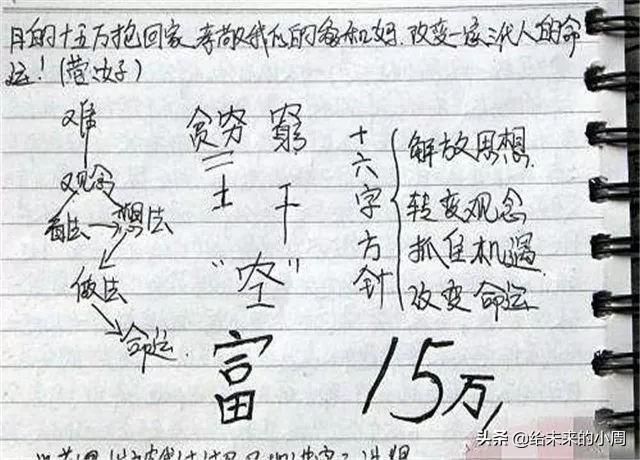 目的十五万抱回家,孝敬我们的爸和妈.改变一家三代人的命
运!(营
难
观念
看法→想法
做法
命运.
贫穷 窮
二
土 干
"空"
富
十六字方针
解放思想
转变观念
抓住机遇
改变命运
15万
头条 @给未来的小周